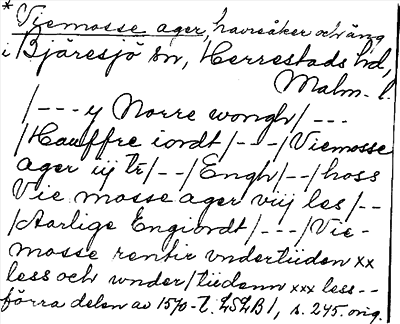 * Viemosse ager, havreåker och äng
i Bjäresjö sn, Herrestads hd,
Malm. l.
/---y Norre wongh/---
/Hauffre iordt/---/Viemosse
ager iij tr/--/Engh/--/hoss
Vie mosse ager viij les/--
/Aarlige Engiordt/---/Vie-
mosse rentir vndertiiden xx
less och wnder/tiidenn xxx less--
förra delen av 1570-t. LSLB1, s. 245. orig.